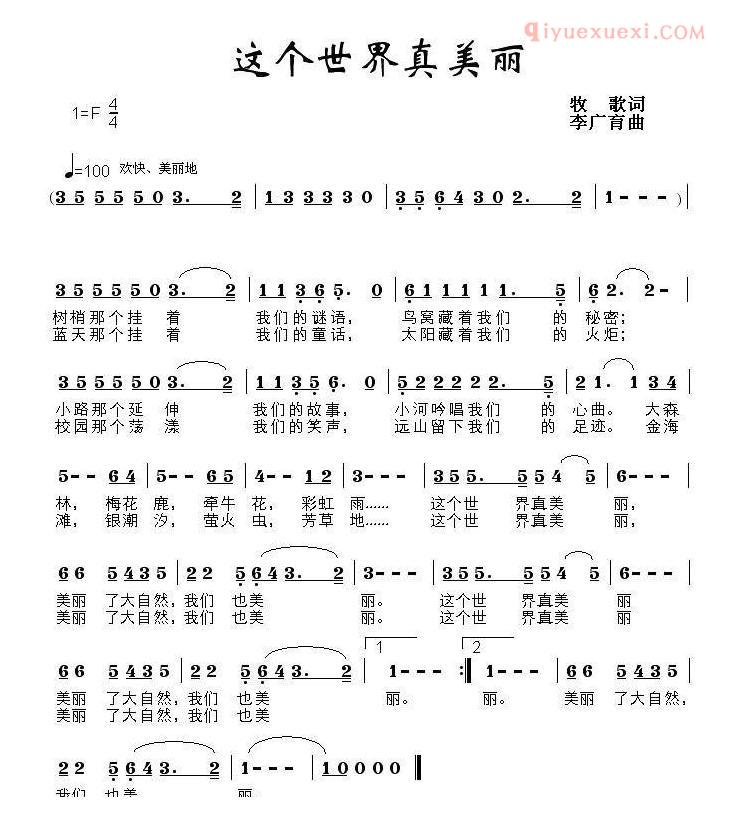 qiyuexuexi.COM
这个世界真美丽
1=F 4/4
牧 歌词
李广育曲
♩=100 欢快、美丽地
(3 5 5 5 5 0 3. 2 | 1 3 3 3 3 0 | 3 5 6 4 3 0 2. 2 | 1 - - - )|
3 5 5 5 5 0 3. 2 | 1 1 3 6 5. 0 | 6 1 1 1 1 1. 5 | 6 2. 2 - |
树梢那个挂 着 我们的谜语, 鸟窝藏着我们 的 秘密;
蓝天那个挂 着 我们的童话, 太阳藏着我们 的 火炬;
3 5 5 5 5 0 3. 2 | 1 1 3 5 6. 0 | 5 2 2 2 2 2. 5 | 2 1. 1 3 4 |
小路那个延 伸 我们的故事, 小河吟唱我们 的 心曲。 大森
校园那个荡 漾 我们的笑声, 远山留下我们 的 足迹。 金海
5 - - 6 4 | 5 - - 6 5 | 4 - - 1 2 | 3 - - - | 3 5 5. 5 4 5 | 6 - - - |
林, 梅花 鹿, 牵牛 花, 彩虹 雨…… 这个世 界真美 丽,
滩, 银潮 汐, 萤火 虫, 芳草 地…… 这个世 界真美 丽,
6 6 5 4 3 5 | 2 2 5 6 4 3. 2 | 3 - - - | 3 5 5. 5 4 5 | 6 - - - |
美丽 了大自然, 我们 也美 丽。 这个世 界真美 丽
美丽 了大自然, 我们 也美 丽。 这个世 界真美 丽
6 6 5 4 3 5 | 2 2 5 6 4 3. 2 | 1 1 - - - :| 2 1 - - - | 6 6 5 4 3 5 |
美丽 了大自然, 我们 也美 丽。 丽。 美丽 了大自然,
美丽 了大自然, 我们 也美
2 2 5 6 4 3. 2 | 1 - - - | 1 0 0 0 0 ‖
我们 也美 丽